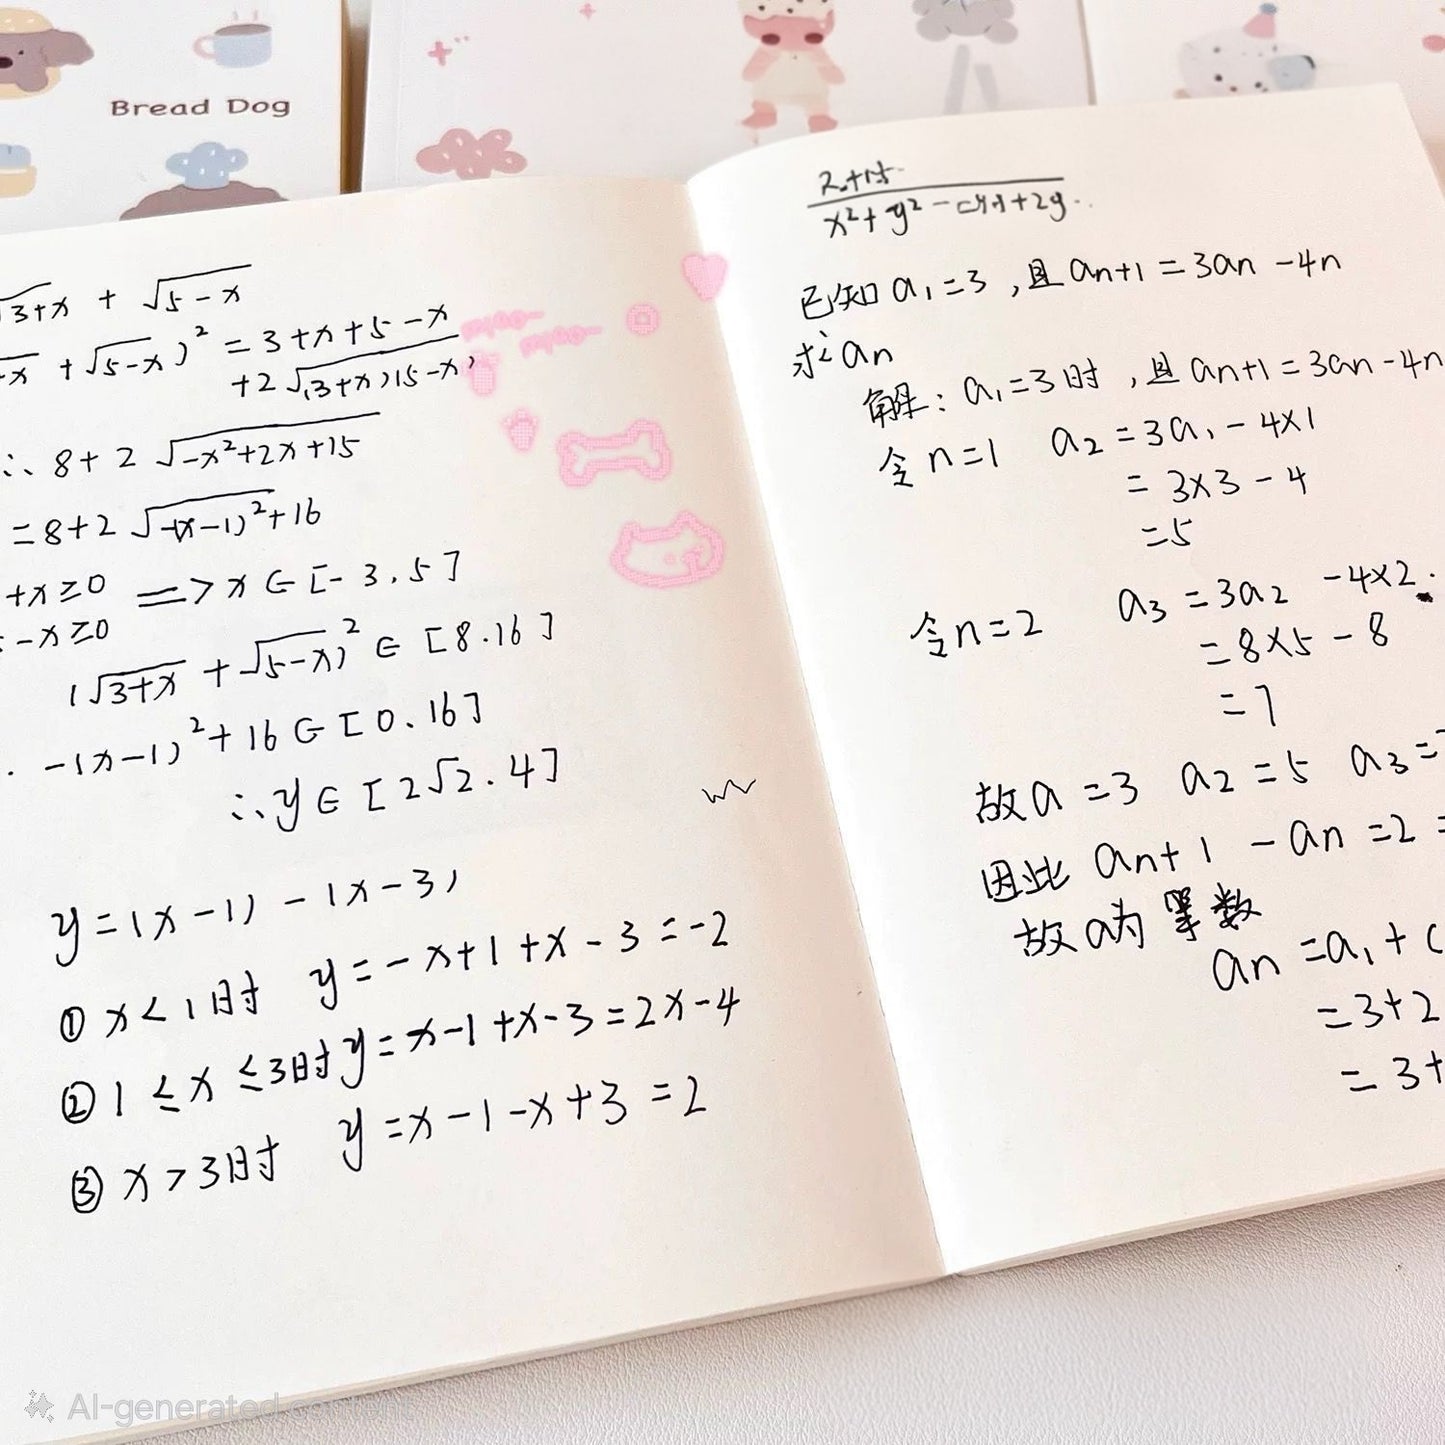 Bread Dog
√3+x + √5-x
-x + √5-x )² = 3+x+5-x
+2√(3+x)(5-x)
∴ 8+2√-x²+2x+15
=8+2√-(x-1)²+16
+x≥0 => x∈[-3.5]
-x≥0
(√3+x + √5-x)² ∈ [8.16]
-(x-1)²+16∈[0.16]
∴y∈[2√2.4]
y=(x-1)-(x-3)
① x<1时 y=-x+1+x-3=-2
② 1≤x≤3时y=x-1+x-3=2x-4
③ x>3时 y=x-1-x+3=2
x²+y²- +2y
已知a₁=3,且an+1=3an-4n
求an
解:a₁=3时,且an+1=3an-4n
令n=1 a₂=3a₁-4×1
=3×3-4
=5
令n=2 a₃=3a₂-4×2.
=8×5-8
=7
故a=3 a₂=5 a₃=
因此 an+1-an=2=
故a为 等数
an=a₁+(
=3+2
=3+
AI-generated content